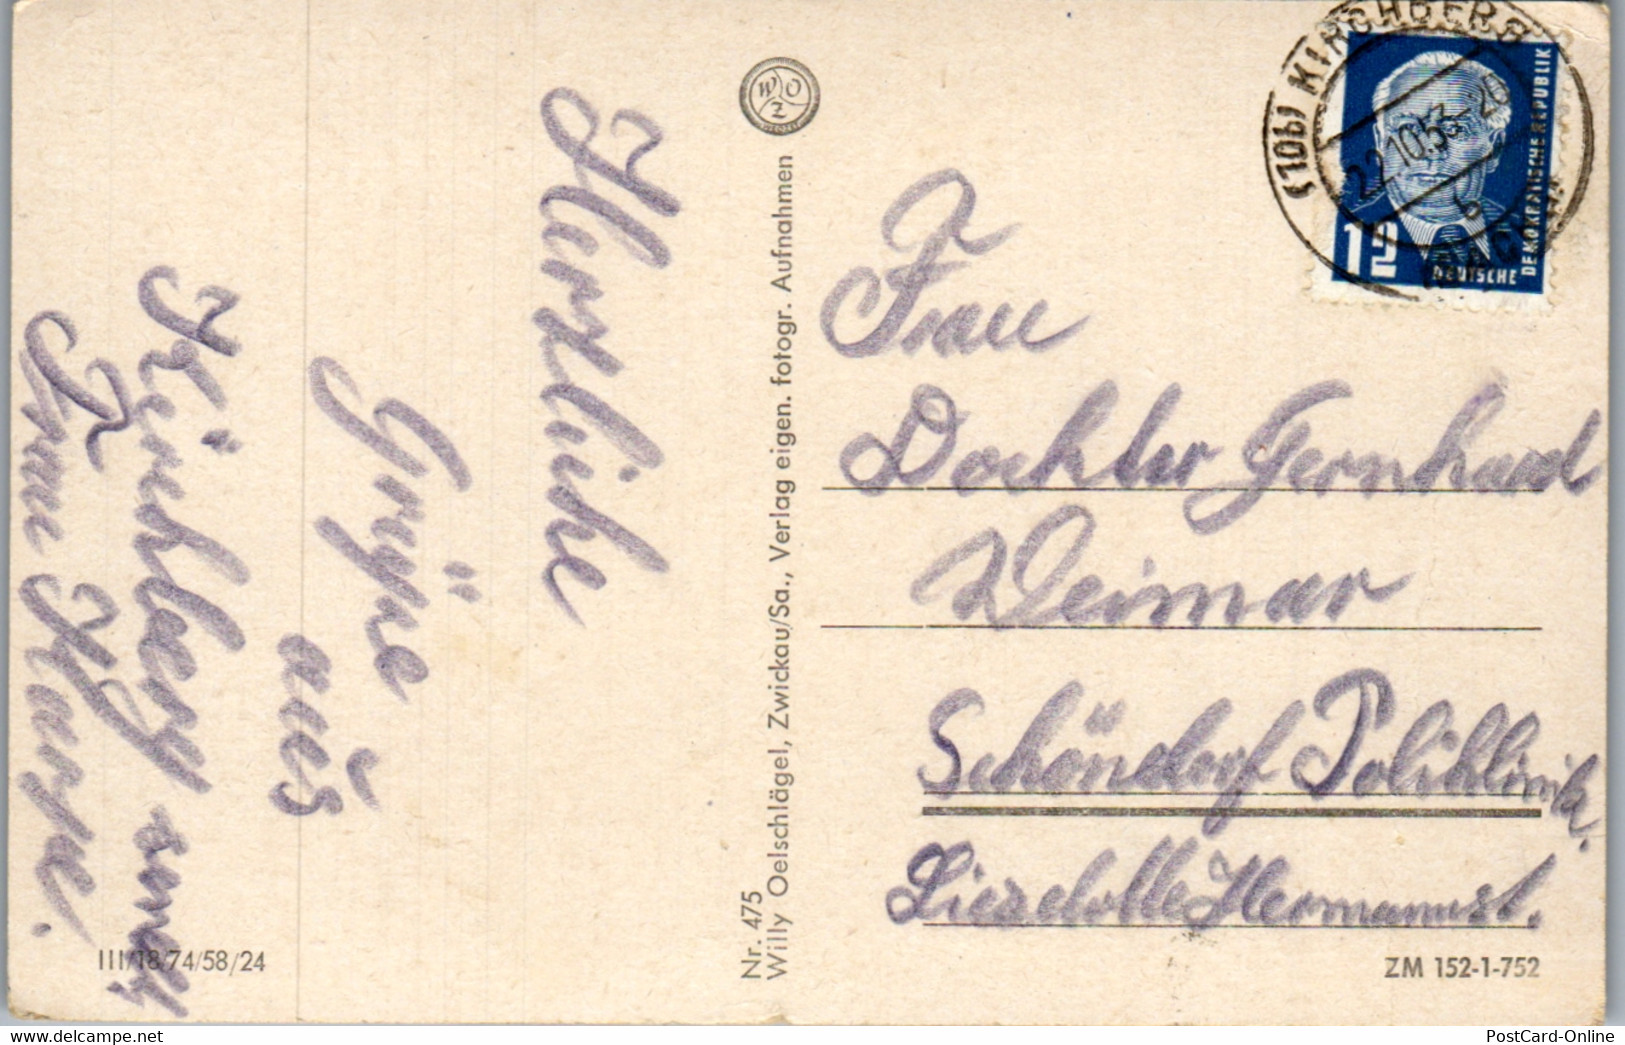 Herzliche
Grüße
aus
Kirchberg
Frau
Nr. 475
Willy Oelschlägel, Zwickau/Sa., Verlag eigen. fotogr. Aufnahmen
W O
Z
III/18/74/58/24
(10b) KIRCHBERG
22.10.53.-20
b
12
DEUTSCHE
DEMOKRATISCHE REPUBLIK
Frau
Dochter Gernhard
Weimar
Schöndorf Poliklinik
Hermannst.
ZM 152-1-752
PostCard-Online
www.delcampe.net